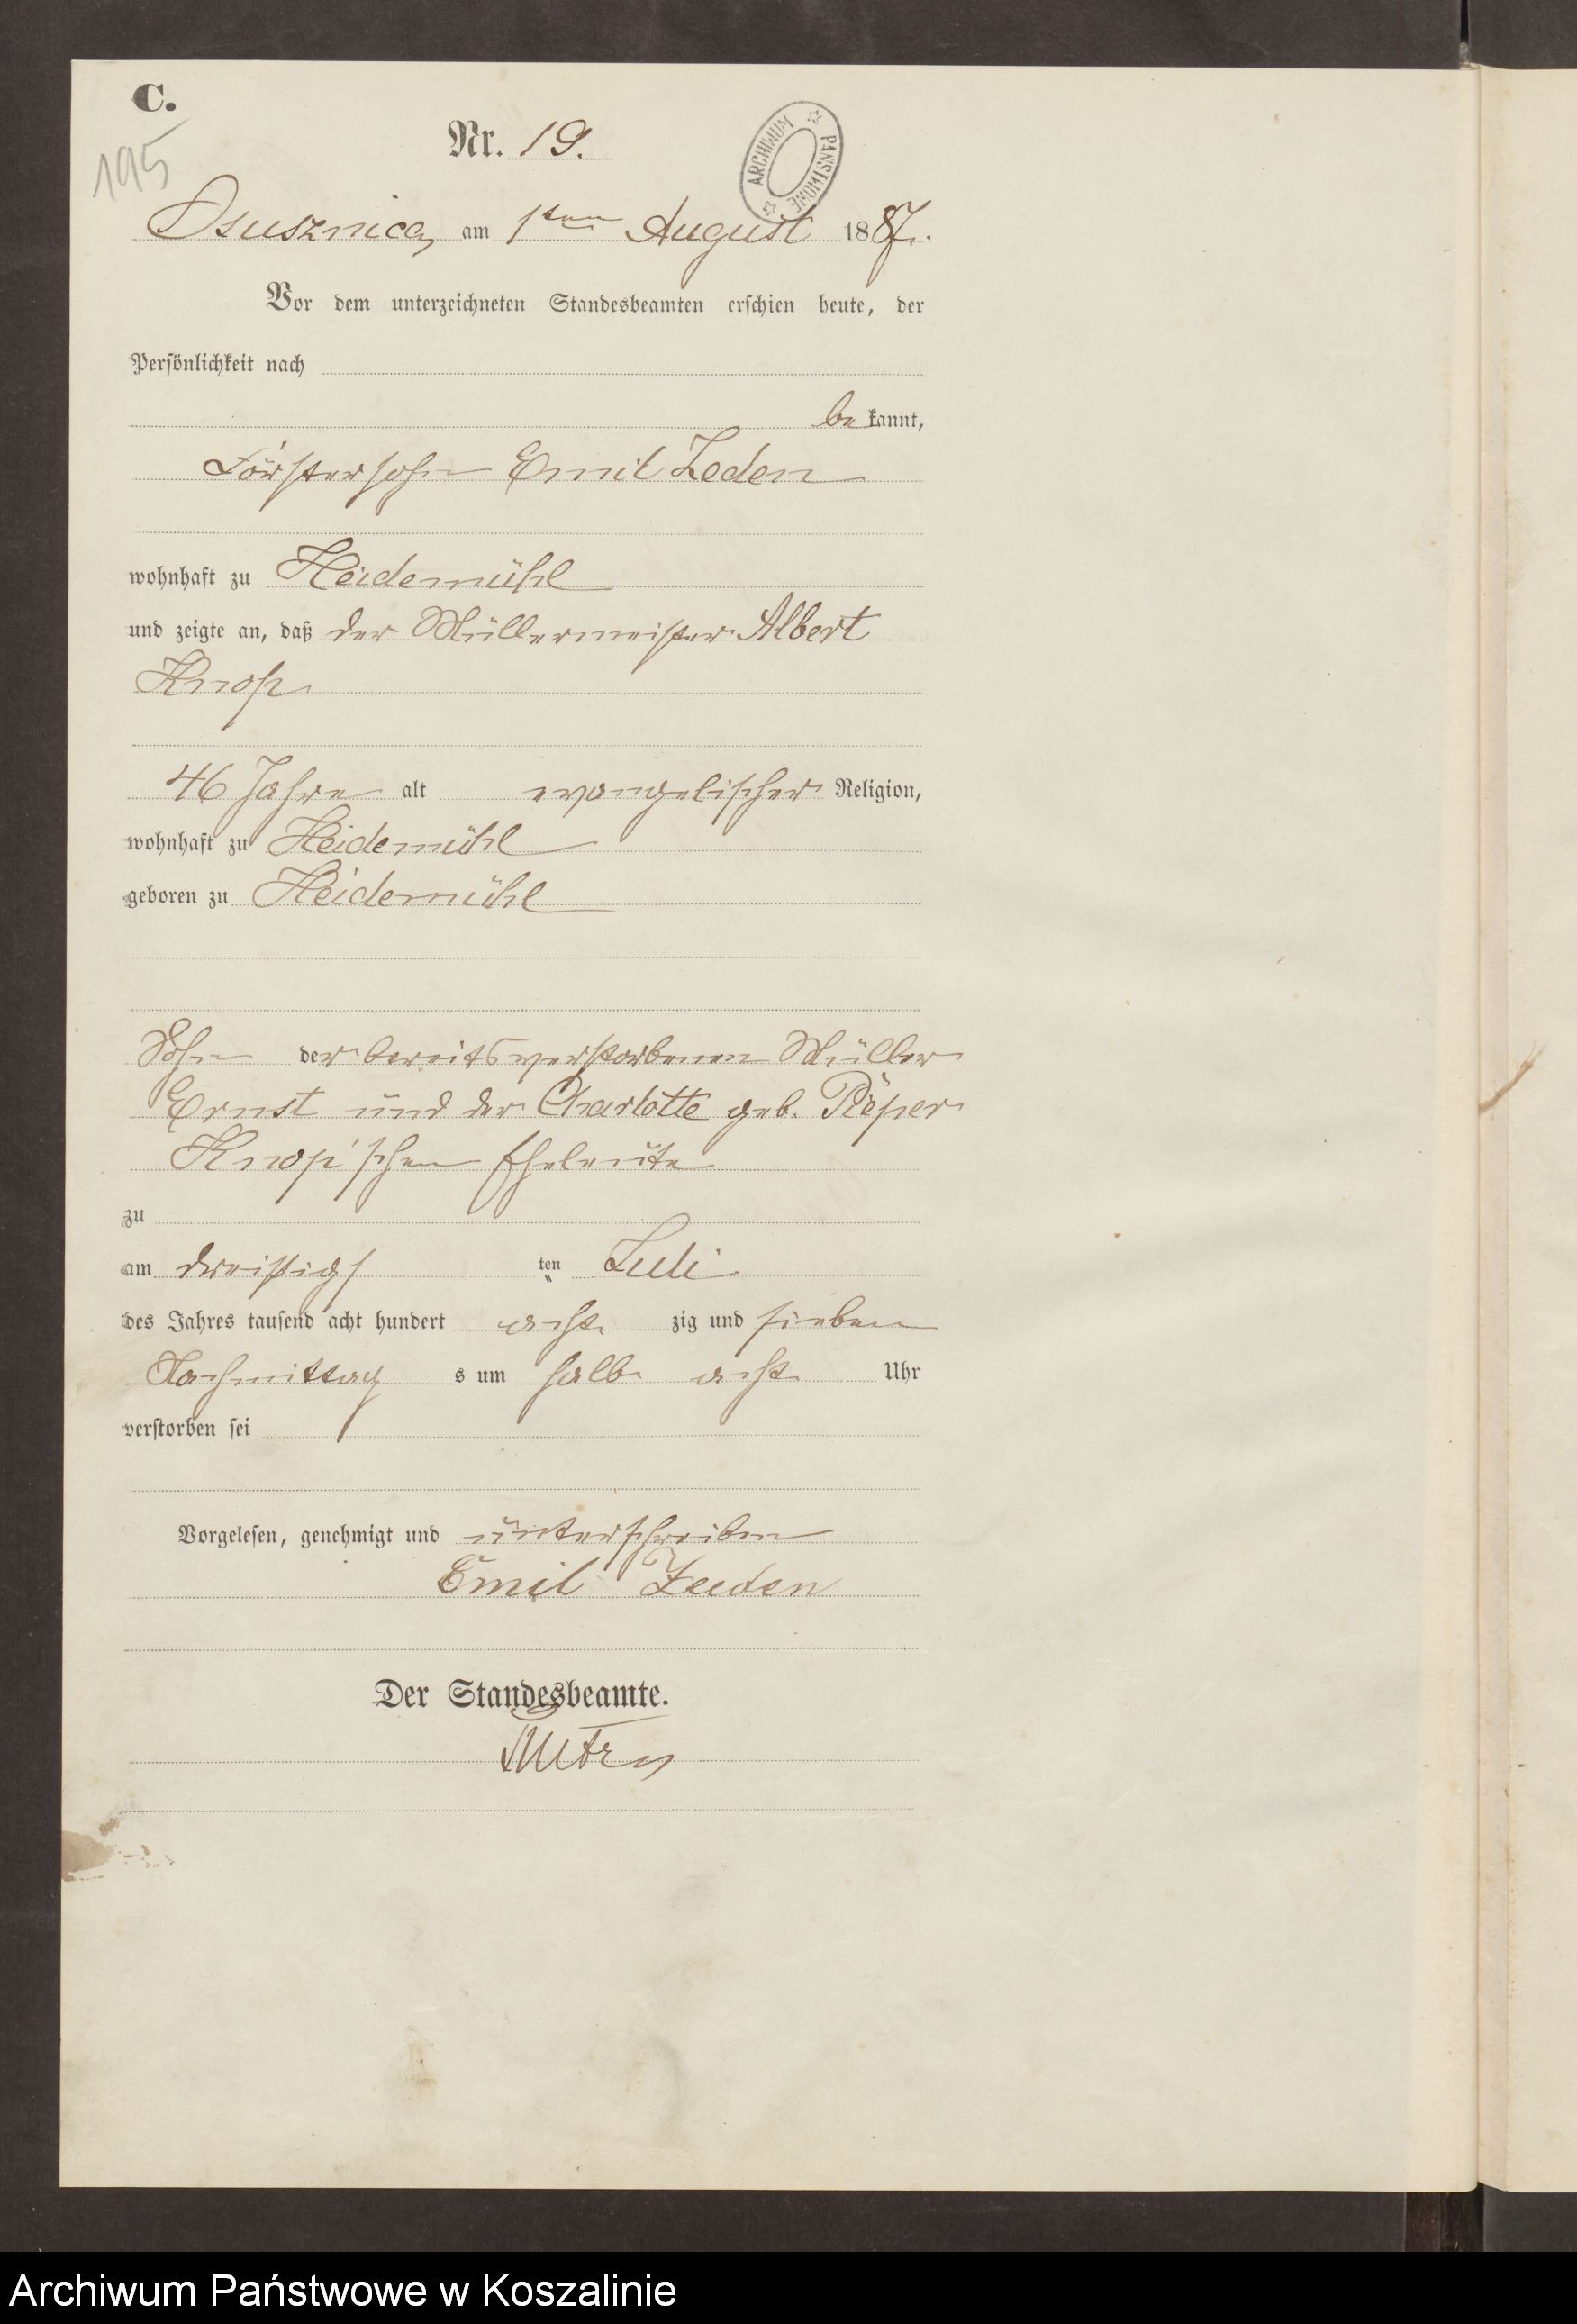 C.
195
Nr. 19.
ARCHIWUM PAŃSTWOWE
Osusznica, am 1ten August 1887.
Vor dem unterzeichneten Standesbeamten erschien heute, der
Persönlichkeit nach
bekannt,
Förstersohn Emil Zeden
wohnhaft zu Heidemühl
und zeigte an, daß der Müllermeister Albert
Knop
46 Jahre alt evangelischer Religion,
wohnhaft zu Heidemühl
geboren zu Heidemühl
Sohn der bereits verstorbenen Müller
Ernst und der Charlotte geb. Pieper
Knop'schen Eheleute
zu
am dreißigsten Juli
des Jahres tausend acht hundert acht zig und sieben
Nachmittags um halb acht Uhr
verstorben sei
Vorgelesen, genehmigt und unterschrieben
Emil Zeden
Der Standesbeamte.
Archiwum Państwowe w Koszalinie